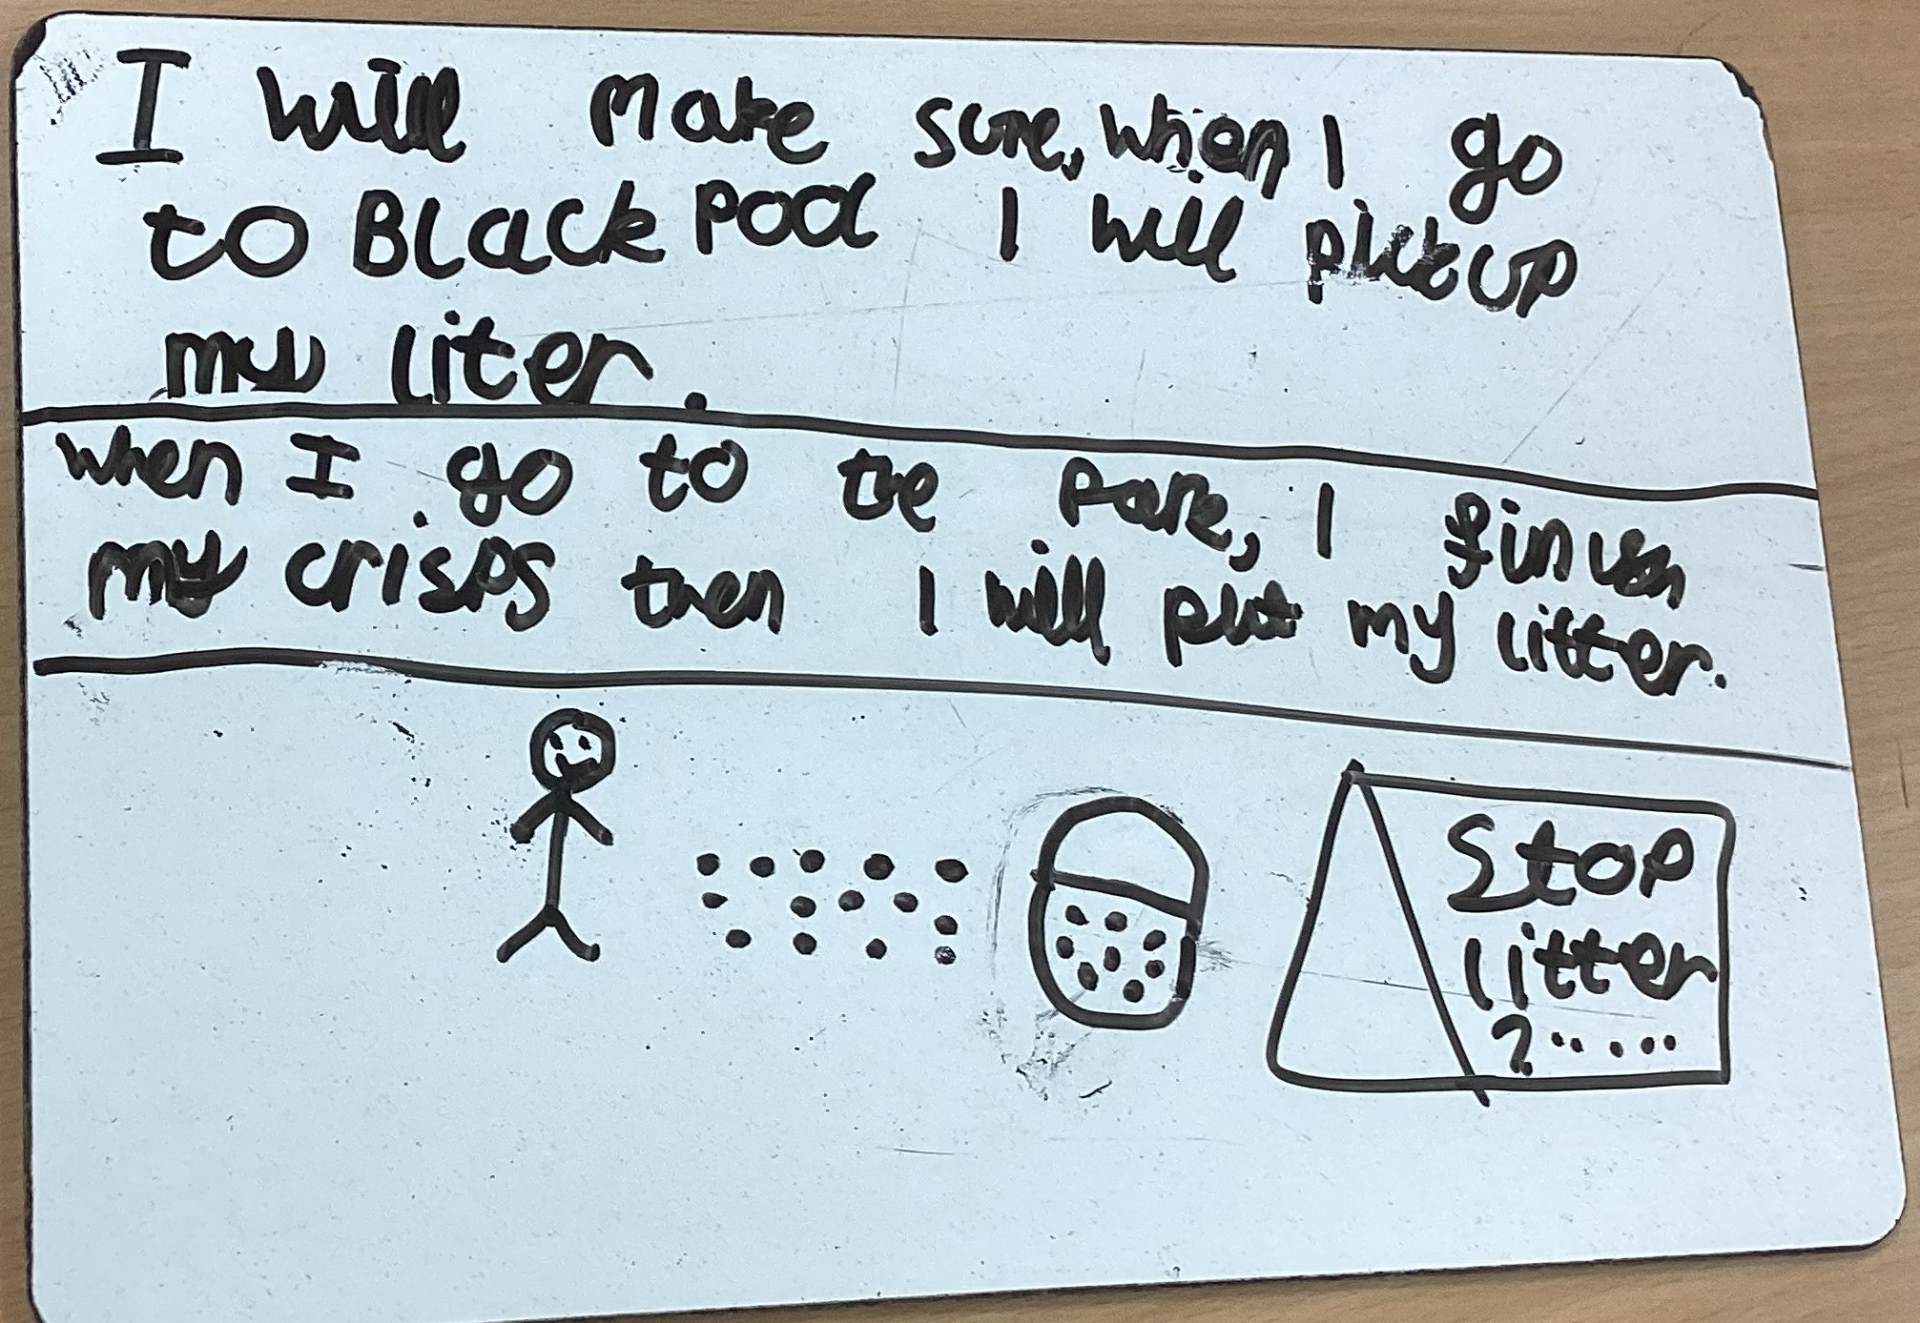 I will make sure, when I go
to BlackPool I will pick up
my liter.
when I go to the Park, I finish
my crisps then I will put my litter.
Stop
litter
?.....